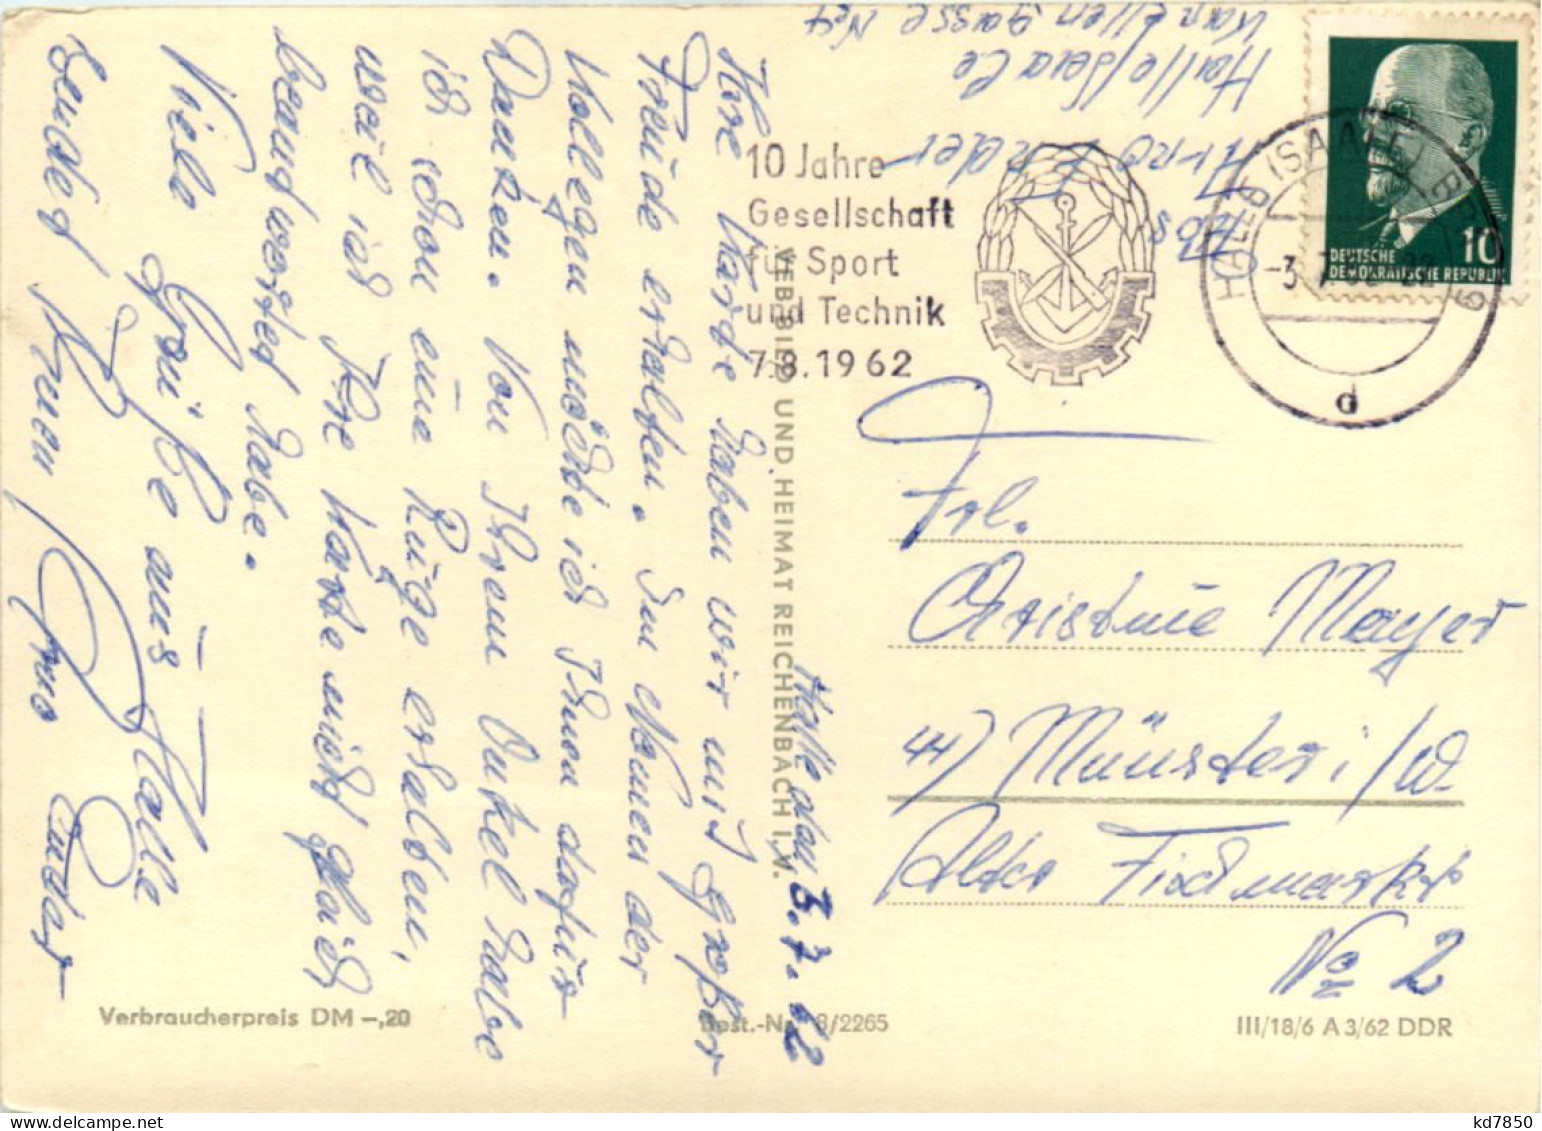 Halle den 3.7.62
Ihre Karte haben wir mit großer
Freude erhalten. Im Namen der
Kollegen möchte ich Ihnen dafür
Danken. Von Ihrem Onkel habe
ich schon eine Rüge erhalten,
weil ich Ihre Karte nicht gleich
beantwortet habe.
Viele Grüße aus Halle
sendet Ihnen Arno
Verbraucherpreis DM –,20
VEB BILD UND HEIMAT REICHENBACH I.V.
Best.-Nr. 8/2265
Abs
Arno
Halle/Saale
10 Jahre
Gesellschaft
für Sport
und Technik
7.8.1962
HALLE (SAALE)
-3.7.62-22
d
10
DEUTSCHE
DEMOKRATISCHE REPUBLIK
Frl.
Christine Mayer
44) Münster i/W.
Alter Fischmarkt
No 2
III/18/6 A 3/62 DDR
kd7850